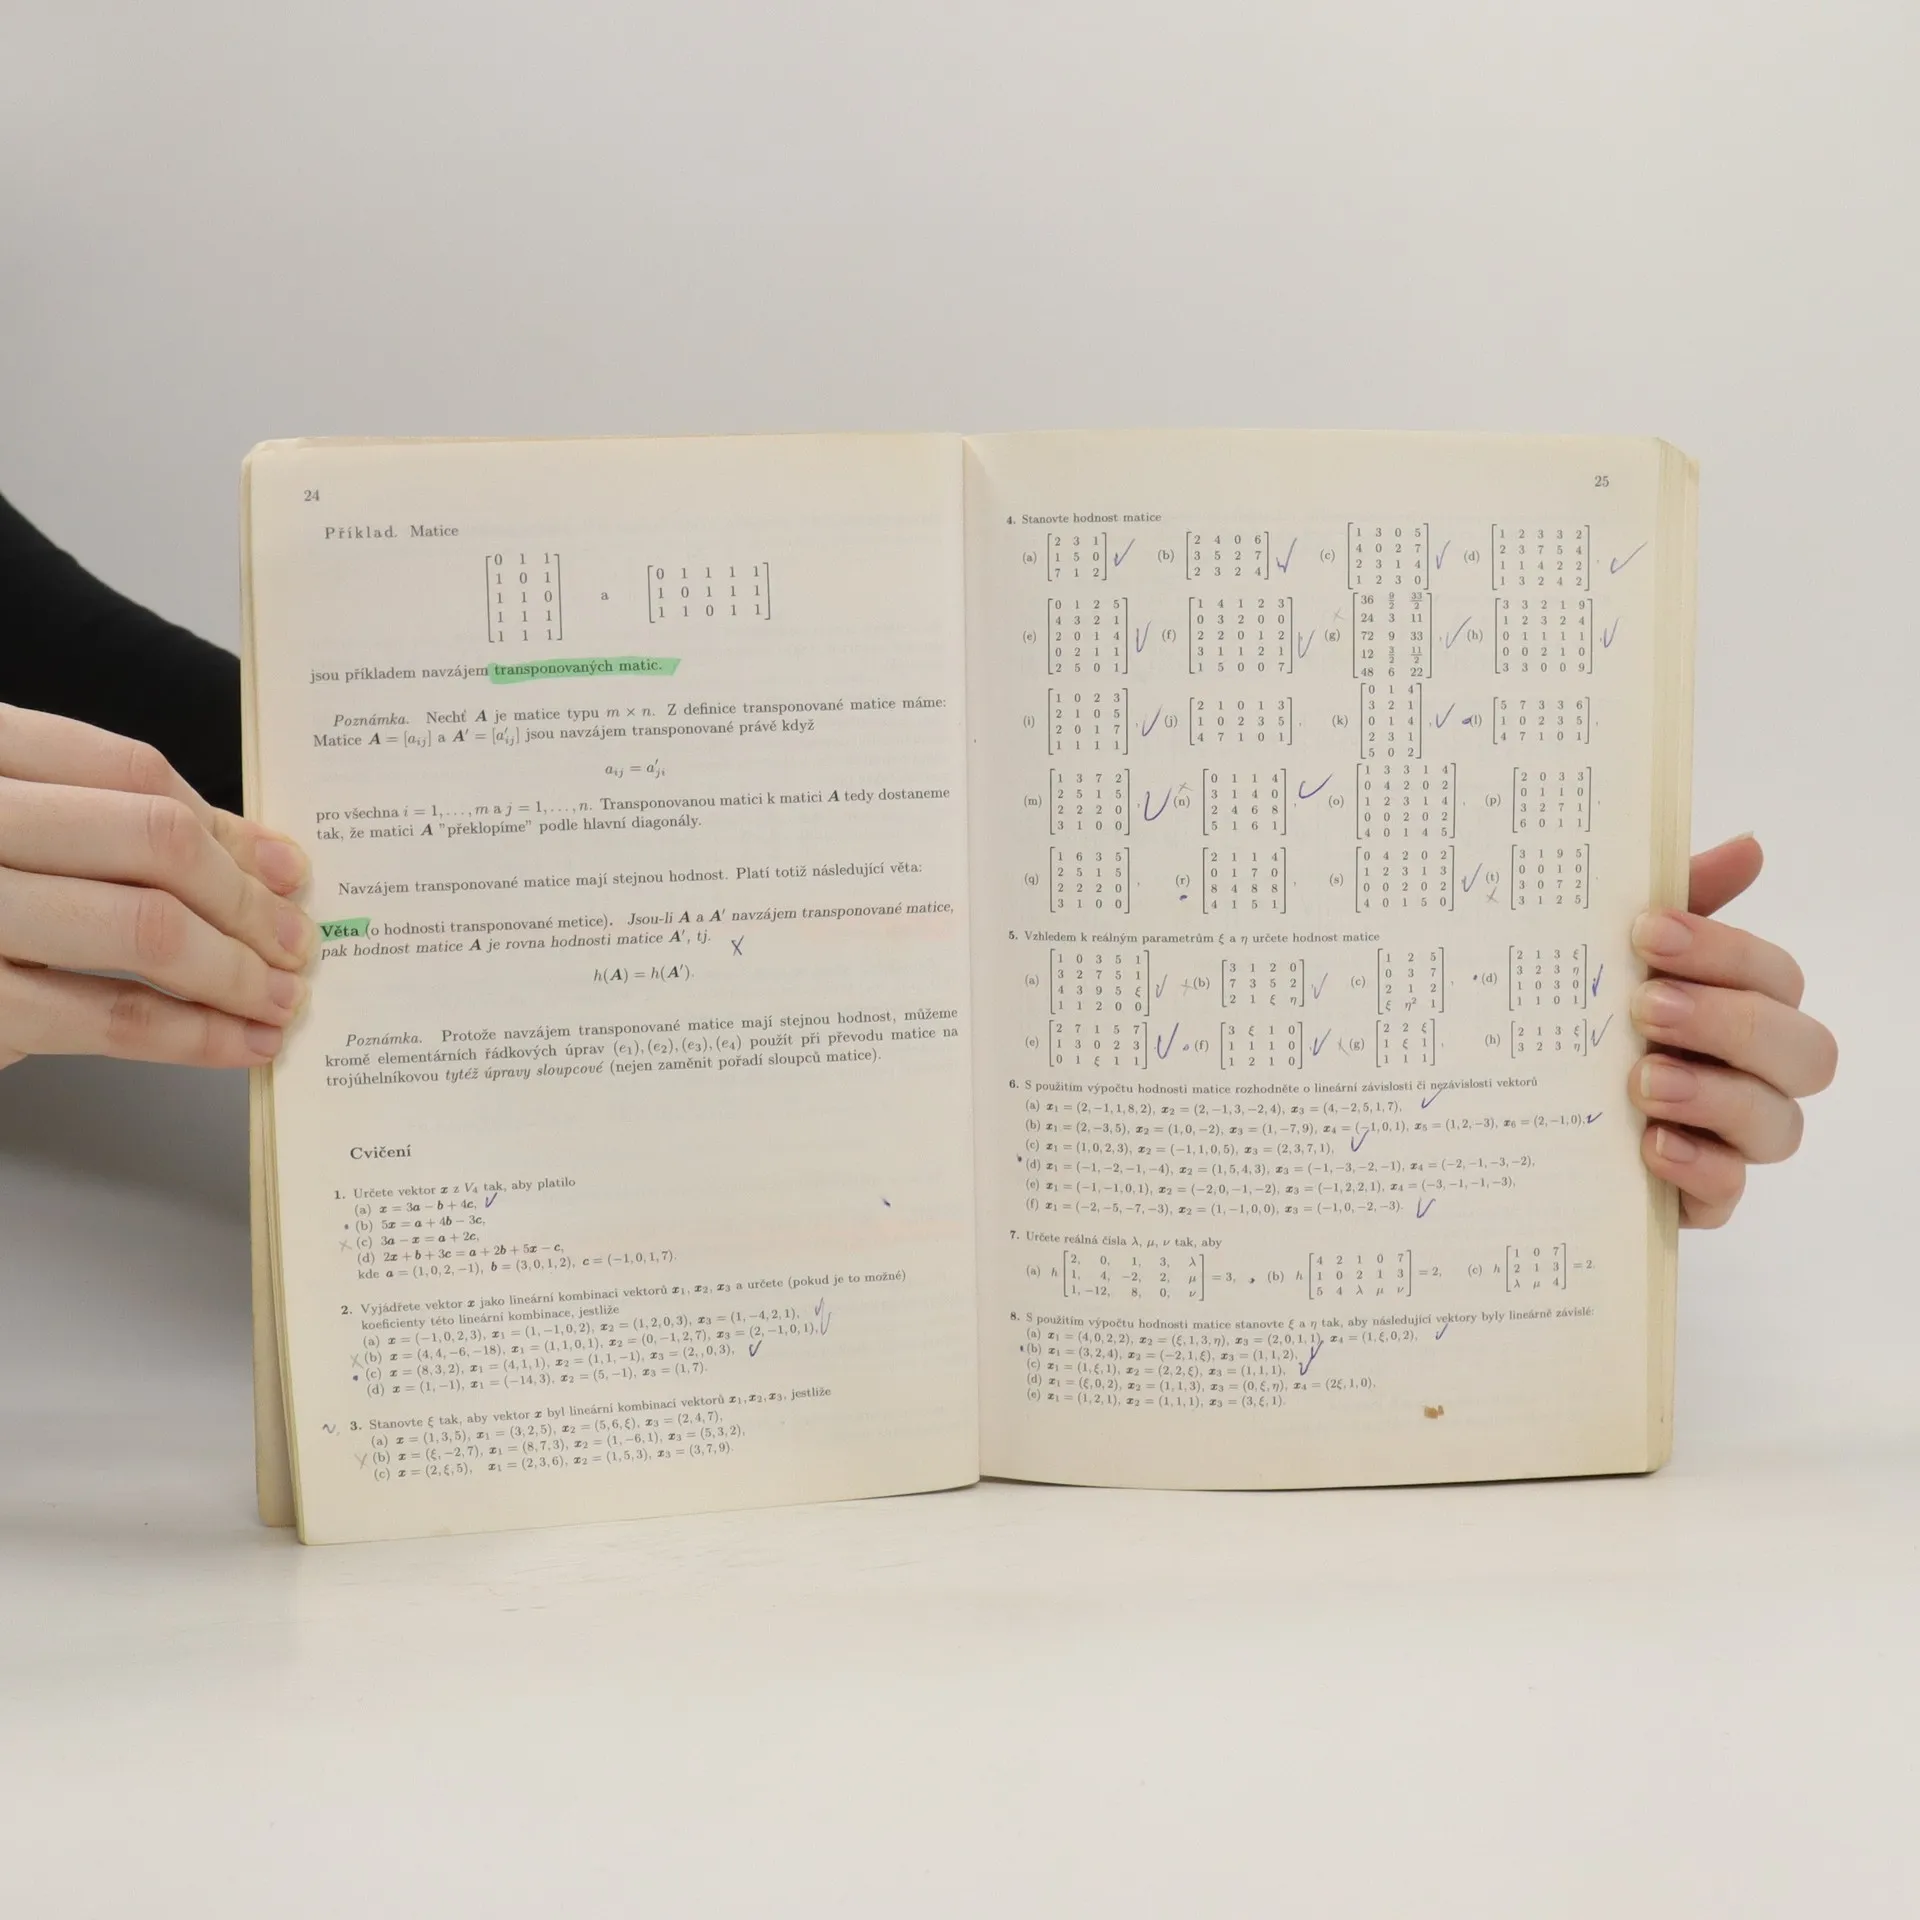 24
Příklad. Matice
0 1 1
1 0 1
1 1 0
1 1 1
1 1 1
a
0 1 1 1 1
1 0 1 1 1
1 1 0 1 1
jsou příkladem navzájem transponovaných matic.
Poznámka. Nechť A je matice typu m × n. Z definice transponované matice máme:
Matice A = [aij] a A′ = [a′ij] jsou navzájem transponované právě když
aij = a′ji
pro všechna i = 1, . . . , m a j = 1, . . . , n. Transponovanou matici k matici A tedy dostaneme
tak, že matici A "překlopíme" podle hlavní diagonály.
Navzájem transponované matice mají stejnou hodnost. Platí totiž následující věta:
Věta (o hodnosti transponované metice). Jsou-li A a A′ navzájem transponované matice,
pak hodnost matice A je rovna hodnosti matice A′, tj.
h(A) = h(A′).
Poznámka. Protože navzájem transponované matice mají stejnou hodnost, můžeme
kromě elementárních řádkových úprav (e1), (e2), (e3), (e4) použít při převodu matice na
trojúhelníkovou tytéž úpravy sloupcové (nejen zaměnit pořadí sloupců matice).
Cvičení
1. Určete vektor x z V4 tak, aby platilo
(a) x = 3a − b + 4c,
(b) 5x = a + 4b − 3c,
(c) 3a − x = a + 2c,
(d) 2x + b + 3c = a + 2b + 5x − c,
kde a = (1, 0, 2, −1), b = (3, 0, 1, 2), c = (−1, 0, 1, 7).
2. Vyjádřete vektor x jako lineární kombinaci vektorů x1, x2, x3 a určete (pokud je to možné)
koeficienty této lineární kombinace, jestliže
(a) x = (−1, 0, 2, 3), x1 = (1, −1, 0, 2), x2 = (1, 2, 0, 3), x3 = (1, −4, 2, 1),
(b) x = (4, 4, −6, −18), x1 = (1, 1, 0, 1), x2 = (0, −1, 2, 7), x3 = (2, −1, 0, 1),
(c) x = (8, 3, 2), x1 = (4, 1, 1), x2 = (1, 1, −1), x3 = (2, , 0, 3),
(d) x = (1, −1), x1 = (−14, 3), x2 = (5, −1), x3 = (1, 7).
3. Stanovte ξ tak, aby vektor x byl lineární kombinací vektorů x1, x2, x3, jestliže
(a) x = (1, 3, 5), x1 = (3, 2, 5), x2 = (5, 6, ξ), x3 = (2, 4, 7),
(b) x = (ξ, −2, 7), x1 = (8, 7, 3), x2 = (1, −6, 1), x3 = (5, 3, 2),
(c) x = (2, ξ, 5), x1 = (2, 3, 6), x2 = (1, 5, 3), x3 = (3, 7, 9).
25
4. Stanovte hodnost matice
(a)
2 3 1
1 5 0
7 1 2
(b)
2 4 0 6
3 5 2 7
2 3 2 4
(c)
1 3 0 5
4 0 2 7
2 3 1 4
1 2 3 0
(d)
1 2 3 3 2
2 3 7 5 4
1 1 4 2 2
1 3 2 4 2
(e)
0 1 2 5
4 3 2 1
2 0 1 4
0 2 1 1
2 5 0 1
(f)
1 4 1 2 3
0 3 2 0 0
2 2 0 1 2
3 1 1 2 1
1 5 0 0 7
(g)
36 9/2 33/2
24 3 11
72 9 33
12 3/2 11/2
48 6 22
(h)
3 3 2 1 9
1 2 3 2 4
0 1 1 1 1
0 0 2 1 0
3 3 0 0 9
(i)
1 0 2 3
2 1 0 5
2 0 1 7
1 1 1 1
(j)
2 1 0 1 3
1 0 2 3 5
4 7 1 0 1
(k)
0 1 4
3 2 1
0 1 4
2 3 1
5 0 2
(l)
5 7 3 3 6
1 0 2 3 5
4 7 1 0 1
(m)
1 3 7 2
2 5 1 5
2 2 2 0
3 1 0 0
(n)
0 1 1 4
3 1 4 0
2 4 6 8
5 1 6 1
(o)
1 3 3 1 4
0 4 2 0 2
1 2 3 1 4
0 0 2 0 2
4 0 1 4 5
(p)
2 0 3 3
0 1 1 0
3 2 7 1
6 0 1 1
(q)
1 6 3 5
2 5 1 5
2 2 2 0
3 1 0 0
(r)
2 1 1 4
0 1 7 0
8 4 8 8
4 1 5 1
(s)
0 4 2 0 2
1 2 3 1 3
0 0 2 0 2
4 0 1 5 0
(t)
3 1 9 5
0 0 1 0
3 0 7 2
3 1 2 5
5. Vzhledem k reálným parametrům ξ a η určete hodnost matice
(a)
1 0 3 5 1
3 2 7 5 1
4 3 9 5 ξ
1 1 2 0 0
(b)
3 1 2 0
7 3 5 2
2 1 ξ η
(c)
1 2 5
0 3 7
2 1 2
ξ η² 1
(d)
2 1 3 ξ
3 2 3 η
1 0 3 0
1 1 0 1
(e)
2 7 1 5 7
1 3 0 2 3
0 1 ξ 1 1
(f)
3 ξ 1 0
1 1 1 0
1 2 1 0
(g)
2 2 ξ
1 ξ 1
1 1 1
(h)
2 1 3 ξ
3 2 3 η
6. S použitím výpočtu hodnosti matice rozhodněte o lineární závislosti či nezávislosti vektorů
(a) x1 = (2, −1, 1, 8, 2), x2 = (2, −1, 3, −2, 4), x3 = (4, −2, 5, 1, 7),
(b) x1 = (2, −3, 5), x2 = (1, 0, −2), x3 = (1, −7, 9), x4 = (−1, 0, 1), x5 = (1, 2, −3), x6 = (2, −1, 0),
(c) x1 = (1, 0, 2, 3), x2 = (−1, 1, 0, 5), x3 = (2, 3, 7, 1),
(d) x1 = (−1, −2, −1, −4), x2 = (1, 5, 4, 3), x3 = (−1, −3, −2, −1), x4 = (−2, −1, −3, −2),
(e) x1 = (−1, −1, 0, 1), x2 = (−2, 0, −1, −2), x3 = (−1, 2, 2, 1), x4 = (−3, −1, −1, −3),
(f) x1 = (−2, −5, −7, −3), x2 = (1, −1, 0, 0), x3 = (−1, 0, −2, −3).
7. Určete reálná čísla λ, μ, ν tak, aby
(a) h
2, 0, 1, 3, λ
1, 4, −2, 2, μ
1, −12, 8, 0, ν
= 3,
(b) h
4 2 1 0 7
1 0 2 1 3
5 4 λ μ ν
= 2,
(c) h
1 0 7
2 1 3
λ μ 4
= 2.
8. S použitím výpočtu hodnosti matice stanovte ξ a η tak, aby následující vektory byly lineárně závislé:
(a) x1 = (4, 0, 2, 2), x2 = (ξ, 1, 3, η), x3 = (2, 0, 1, 1), x4 = (1, ξ, 0, 2),
(b) x1 = (3, 2, 4), x2 = (−2, 1, ξ), x3 = (1, 1, 2),
(c) x1 = (1, ξ, 1), x2 = (2, 2, ξ), x3 = (1, 1, 1),
(d) x1 = (ξ, 0, 2), x2 = (1, 1, 3), x3 = (0, ξ, η), x4 = (2ξ, 1, 0),
(e) x1 = (1, 2, 1), x2 = (1, 1, 1), x3 = (3, ξ, 1).